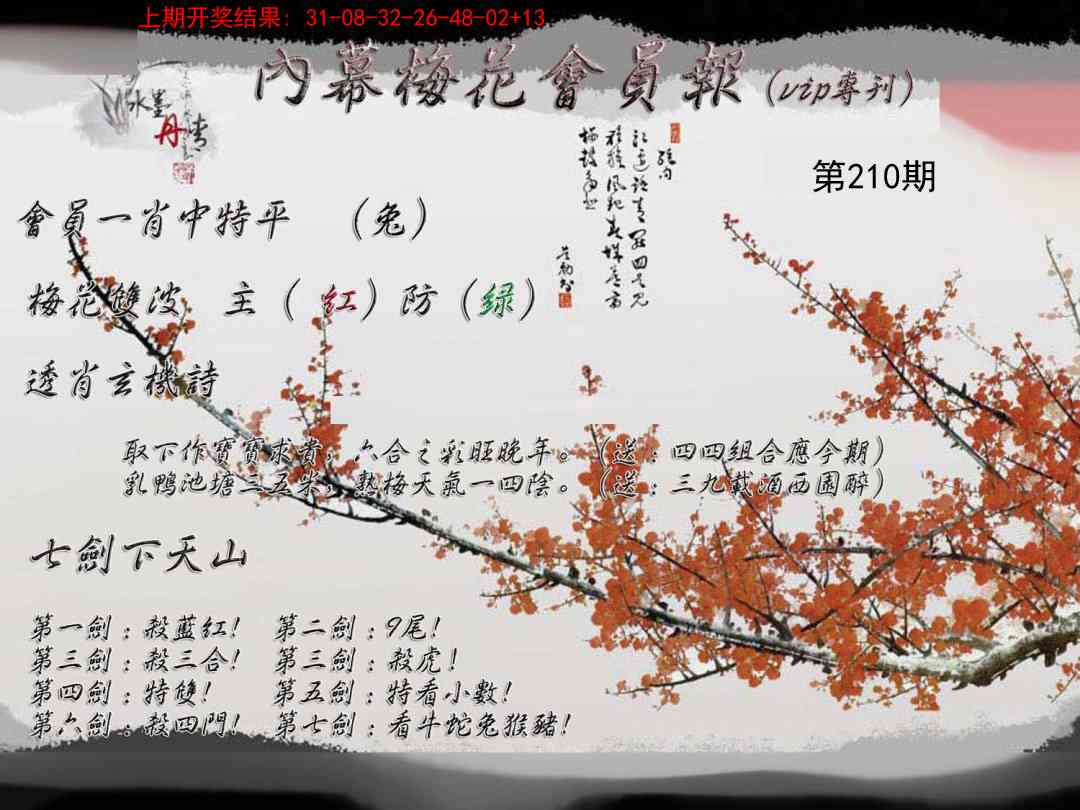 上期开奖结果: 31-08-32-26-48-02+13
內幕梅花會員報(vip專刊)
水墨
丹青
第210期
會員一肖中特平 (兔)
梅花雙波 主(紅)防(绿)
透肖玄機詩
取下作寶寶求貴, 六合之彩旺晚年。(送:四四組合應今期)
乳鴨池塘三五朱, 熱梅天氣一四陰。(送:三九載酒西園醉)
七劍下天山
第一劍:殺藍紅! 第二劍:9尾!
第三劍:殺三合! 第三劍:殺虎!
第四劍:特雙! 第五劍:特看小數!
第六劍:殺四門! 第七劍:看牛蛇兔猴豬!